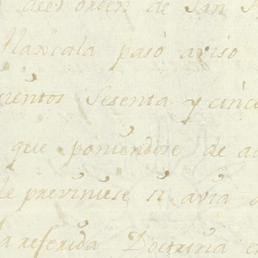 orden de San
Tlaxcala pasó aviso
cientos sesenta y cinc
que poniendose de ac
se previniese si avia
la referida Doctrina e